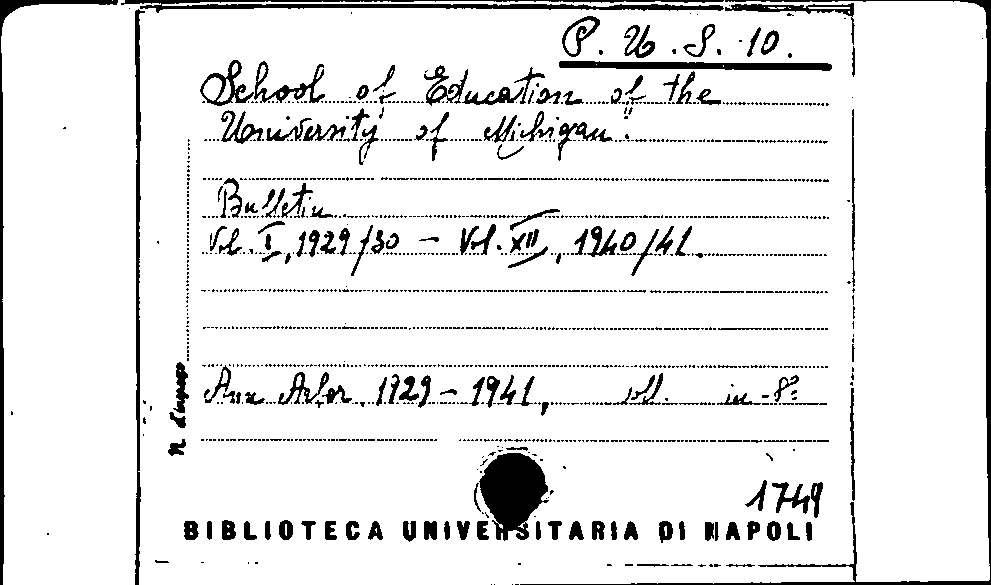 P. U. S. 10.
School of Education of the
University of Michigan".
Bulletin
Vol. I, 1929/30 - Vol. XII, 1940/41.
Ann Arbor. 1929 - 1941, voll. in-8º
N. d'ingresso
1749
BIBLIOTECA UNIVERSITARIA DI NAPOLI